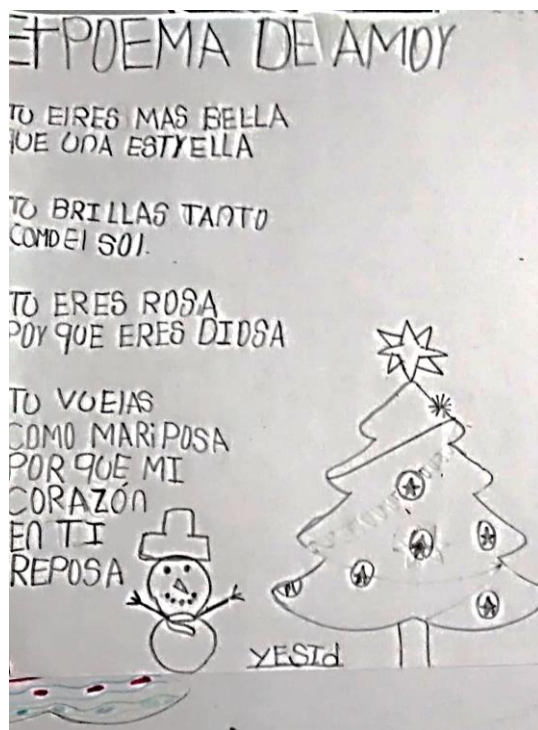 El POEMA DE AMOY
TU EIRES MAS BELLA
QUE UNA ESTYELLA
TU BRILLAS TANTO
COMO EI SOI.
TU ERES ROSA
POY QUE ERES DIOSA
TU VUEIAS
COMO MARiPOSA
POR QUE MI
CORAZÓn
En TI
REPOSA
YESId